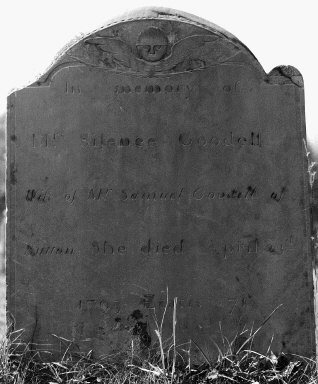 In memory of
Mrs Silence Goodell
Wife of Mr Samuel Goodell of
Sutton She died April
1797